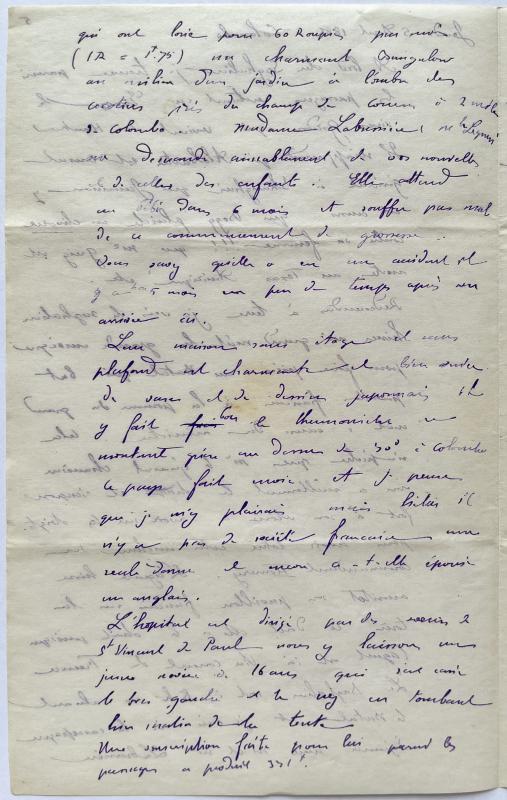 qui ont loué pour 60 Roupies par mois
(1R = 1f.75) un charmant Bungalow
au milieu d'un jardin à l'ombre des
cocotiers près du champ de courses à 2 milles
de Colombo. Madame Labussière
me demande aimablement de vos nouvelles
& de celles des enfants. Elle attend
un bébé dans 6 mois et souffre pas mal
de ce commencement de grossesse.
Vous savez qu'elle a eu un accident il
y a mois un peu de temps après son
arrivée ici.
Leur maison sans étage et sans
plafond est charmante et bien ornée
de vases et de dessins japonais il
y fait bon le thermomètre ne
montant guère au dessus de 30° à Colombo
Ce pays fait envie et je pense
que je m'y plairais mais hélas il
n'y a pas de société française une
seule dame et encore a-t-elle épousé
un anglais.
L'hopital est dirigé par des soeurs de
St Vincent de Paul nous y laissons un
jeune novice de 16 ans qui s'est cassé
le bras gauche et le nez en tombant
hier matin de la tente
Une souscription faite pour lui parmi les
passagers a produit 331f.